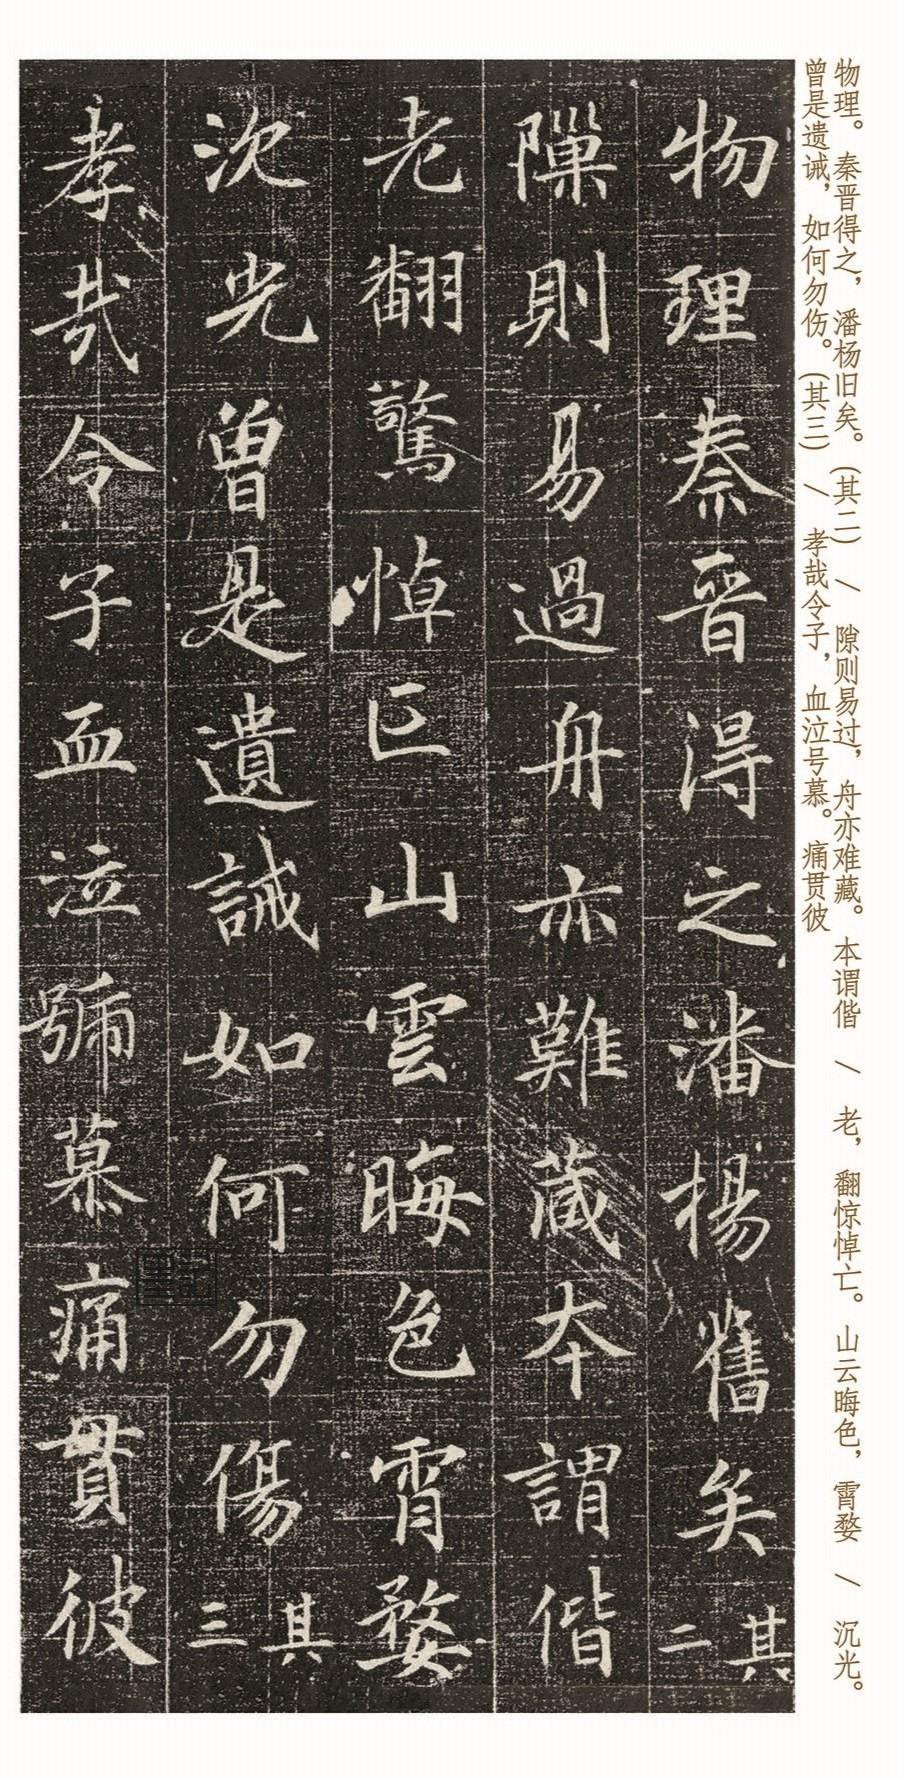 物理。秦晋得之，潘杨旧矣。（其二） / 隙则易过，舟亦难藏。本谓偕 / 老，翻惊悼亡。山云晦色，霄婺 / 沉光。
曾是遗诫，如何勿伤。（其三） / 孝哉令子，血泣号慕。痛贯彼
物理秦晉淂之潘楊舊矣其二
隟則易過舟亦難蔵本謂偕
老翻驚悼亡山雲晦色霄婺
沉光曾是遺誡如何勿傷其三
孝哉令子血泣號慕痛貫彼